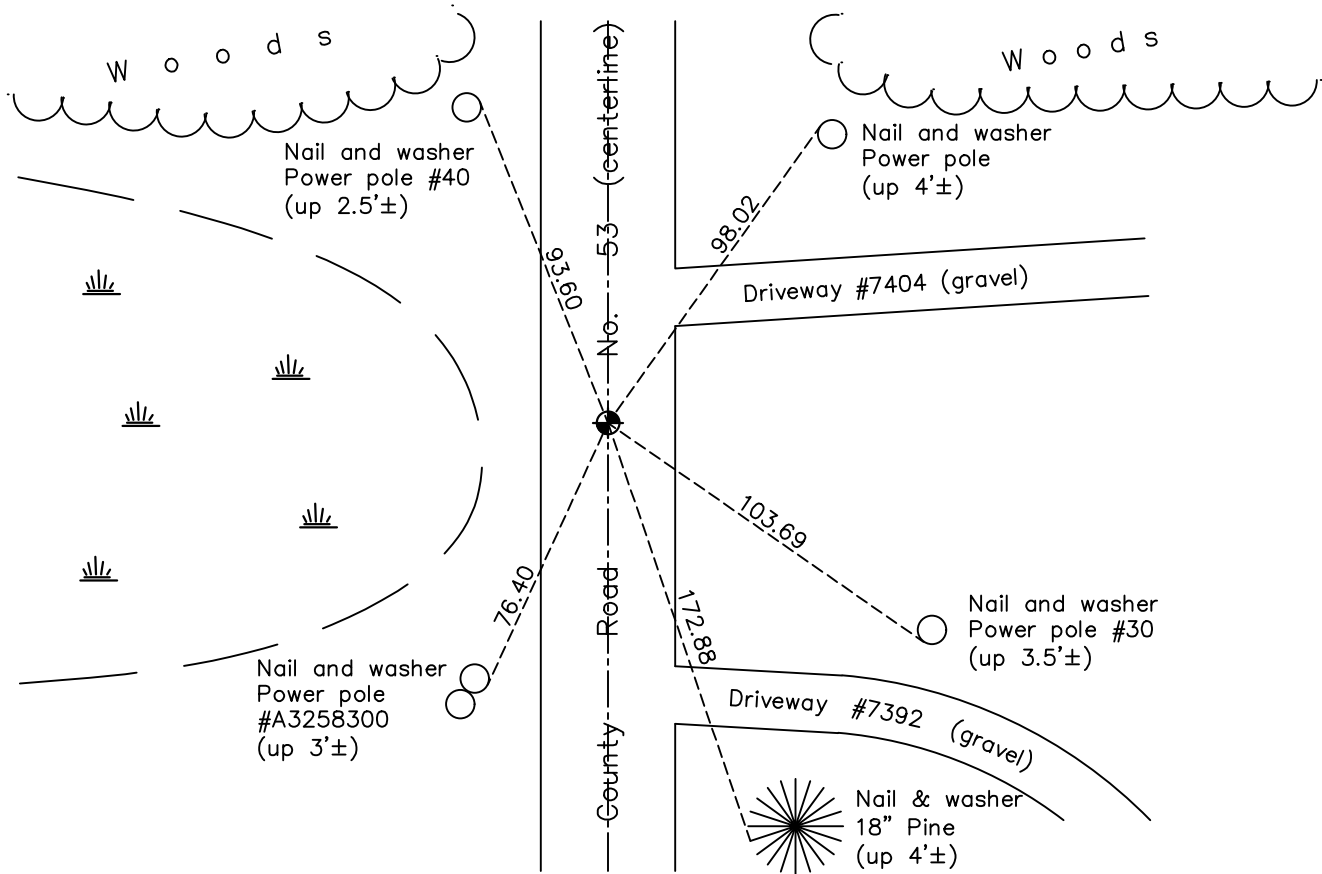 Woods
Woods
Nail and washer
Power pole #40
(up 2.5'±)
Nail and washer
Power pole
(up 4'±)
County Road No. 53 (centerline)
98.02
93.60
Driveway #7404 (gravel)
103.69
76.40
172.88
Nail and washer
Power pole #30
(up 3.5'±)
Nail and washer
Power pole
#A3258300
(up 3'±)
Driveway #7392 (gravel)
Nail & washer
18" Pine
(up 4'±)